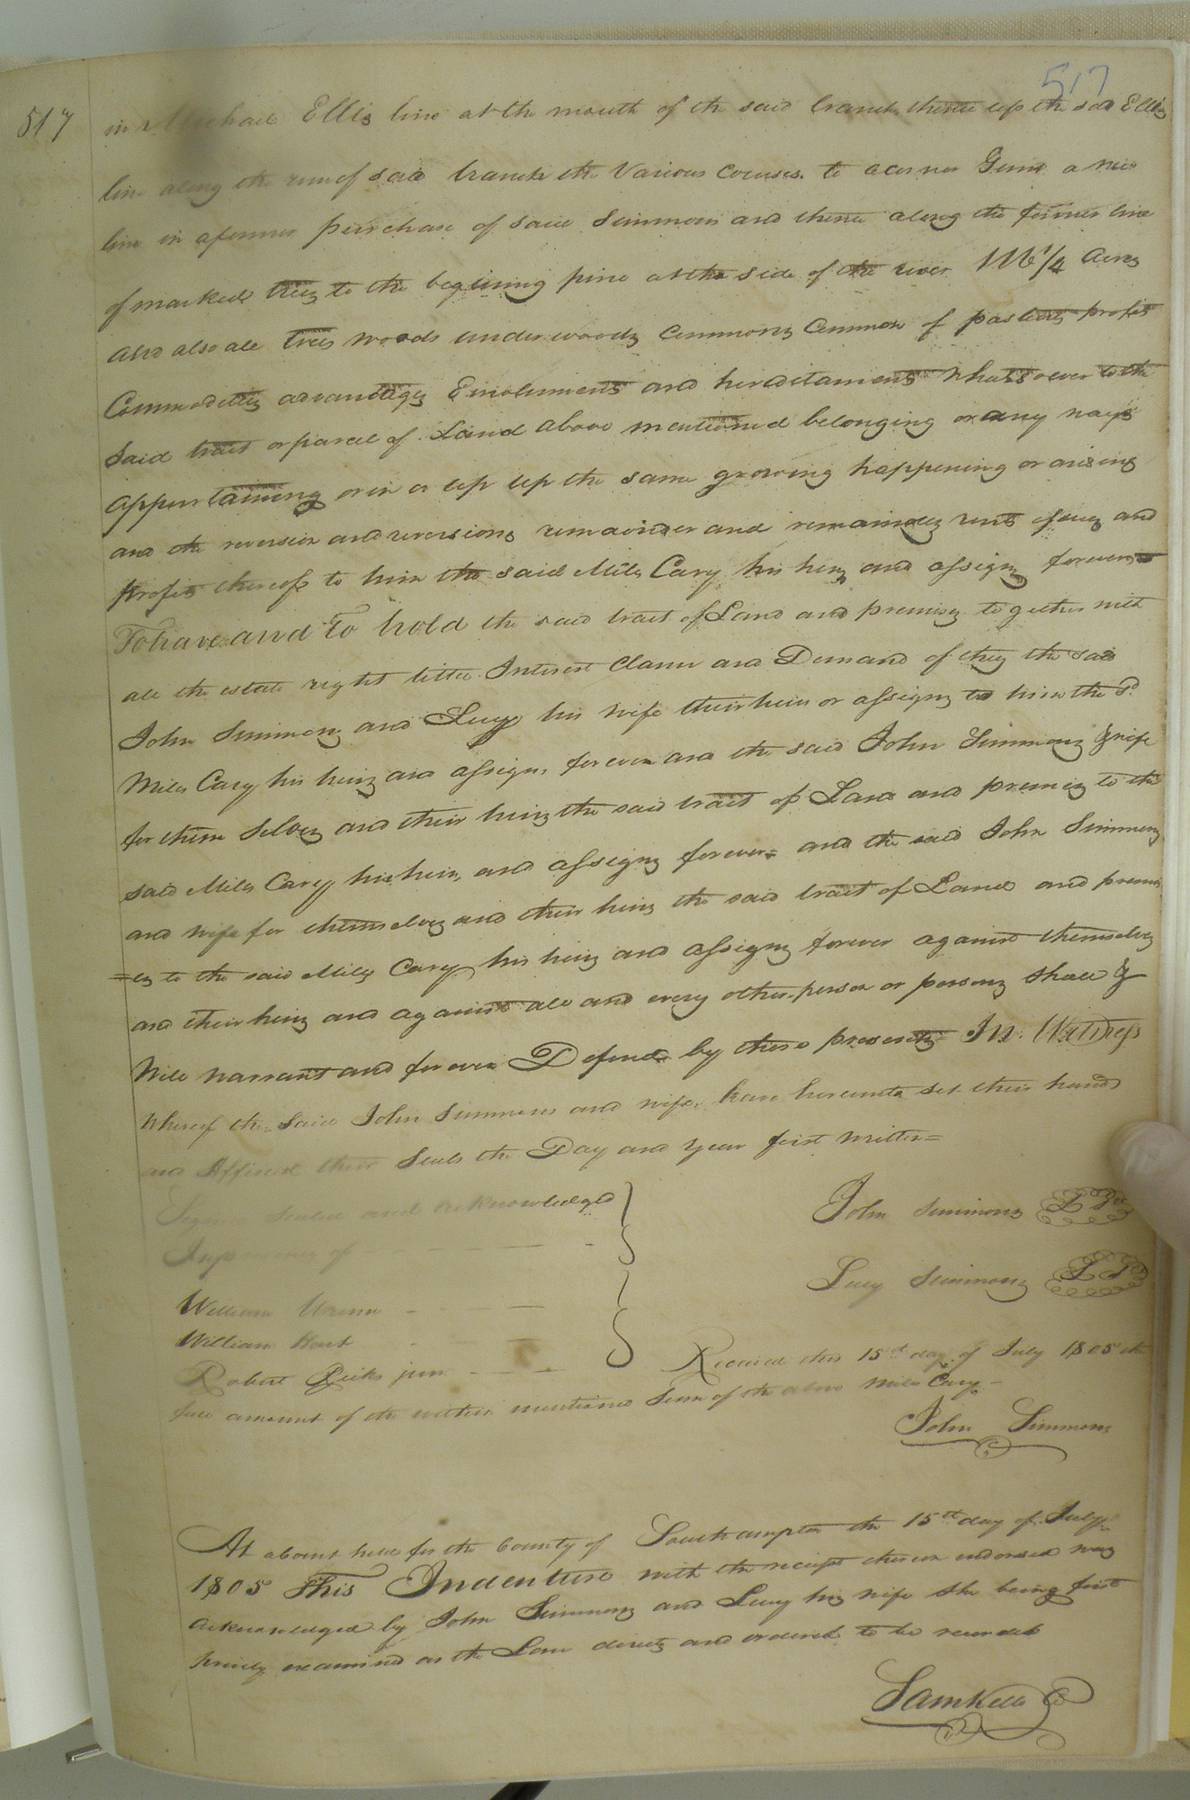 517
517
in Michael Ellis line at the mouth of the said branch thence up the said Ellis
line along the run of said branch the Various courses to a corner Gum a new
line in a former purchase of said Simmons and thence along the former line
of marked trees to the begining pine at the side of the river 116 1/2 Acres
and also all trees woods underwoods Commons Common of pasture profits
Commodities advantages Emoluments and hereditaments whatsoever to the
Said tract or parcel of Land above mentioned belonging or any ways
appertaining or in or up the same growing happening or arising
and the reversion and reversions remainder and remainders rents issues and
profits thereof to him the said Miles Cary his heirs and assigns forever
To have and To hold the said tract of Land and premises together with
all the estate right title Interest Claim and Demand of they the said
John Simmons and Lucy his wife their heirs or assigns to him the sd
Miles Cary his heirs and assigns forever and the said John Simmons & wife
for them Selves and their heirs the said tract of Land and premises to the
said Miles Cary his heirs and assigns forever and the said John Simmons
and wife for themselves and their heirs the said tract of Land and premis
=es to the said Miles Cary his heirs and assigns forever against themselves
and their heirs and against all and every other person or persons Shall &
Will warrant and forever Defend by these presents In Witness
whereof the Said John Simmons and wife have hereunto set their hands
and Affixed their Seals the Day and year first written=
Signed Sealed and acknowledged
In presence of
John Simmons
Lucy Simmons
William Urquhart
William Hart
Robert Ricks junr
Received this 15th day of July 1805 the
full amount of the within mentioned Sum of the above Miles Cary
John Simmons
At a Court held for the County of Southampton the 15th day of July
1805 This Indenture with the receipt thereon endorsed was
Acknowledged by John Simmons and Lucy his wife she being first
privily examined as the Law directs and ordered to be recorded
Saml Kello C